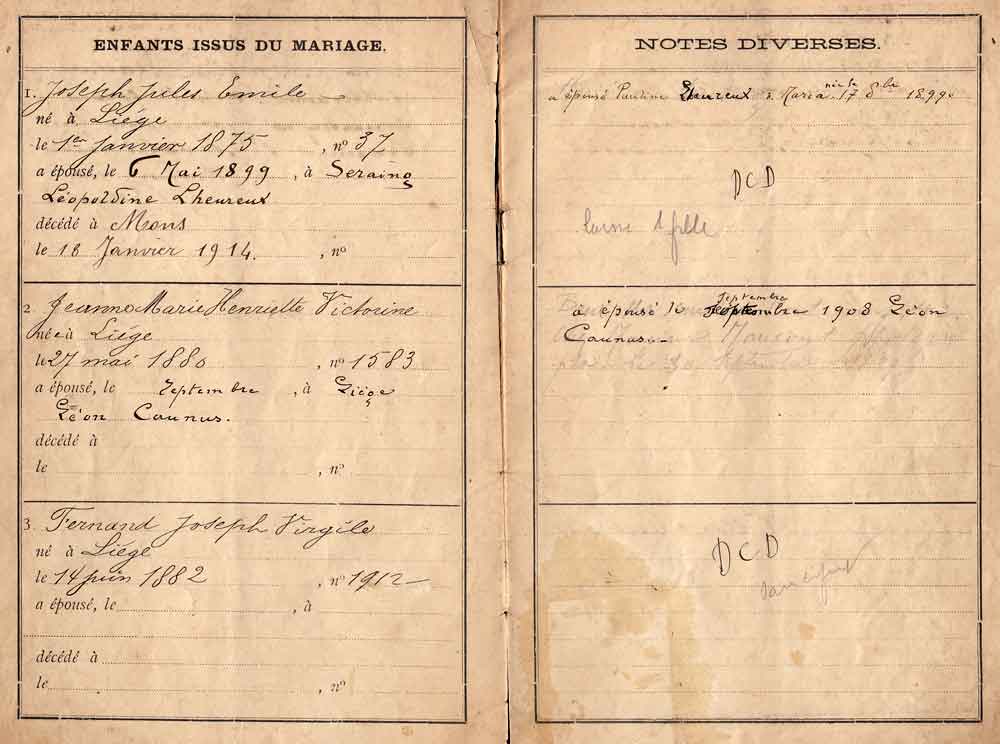 ENFANTS ISSUS DU MARIAGE.
1. Joseph Jules Emile
né à Liége
le 1er janvier 1875, nº 37
a épousé, le 6 Mai 1899, à Seraing
Léopoldine Lheureux
décédé à Mons
le 18 Janvier 1914., nº
2. Jeanne Marie Henriette Victorine
née à Liége
le 27 mai 1880, nº 1583
a épousé, le Septembre, à Liège
Léon Caunus.
décédé à
le, nº
3. Fernand Joseph Virgile
né à Liége
le 14 juin 1882, nº 1912
a épousé, le, à
décédé à
le, nº
NOTES DIVERSES.
a épousé Pauline Lheureux à 17 8bre 1899
DCD
laisse 1 fille
Septembre
a épousé le Septembre 1908 Léon
Caunus
DCD